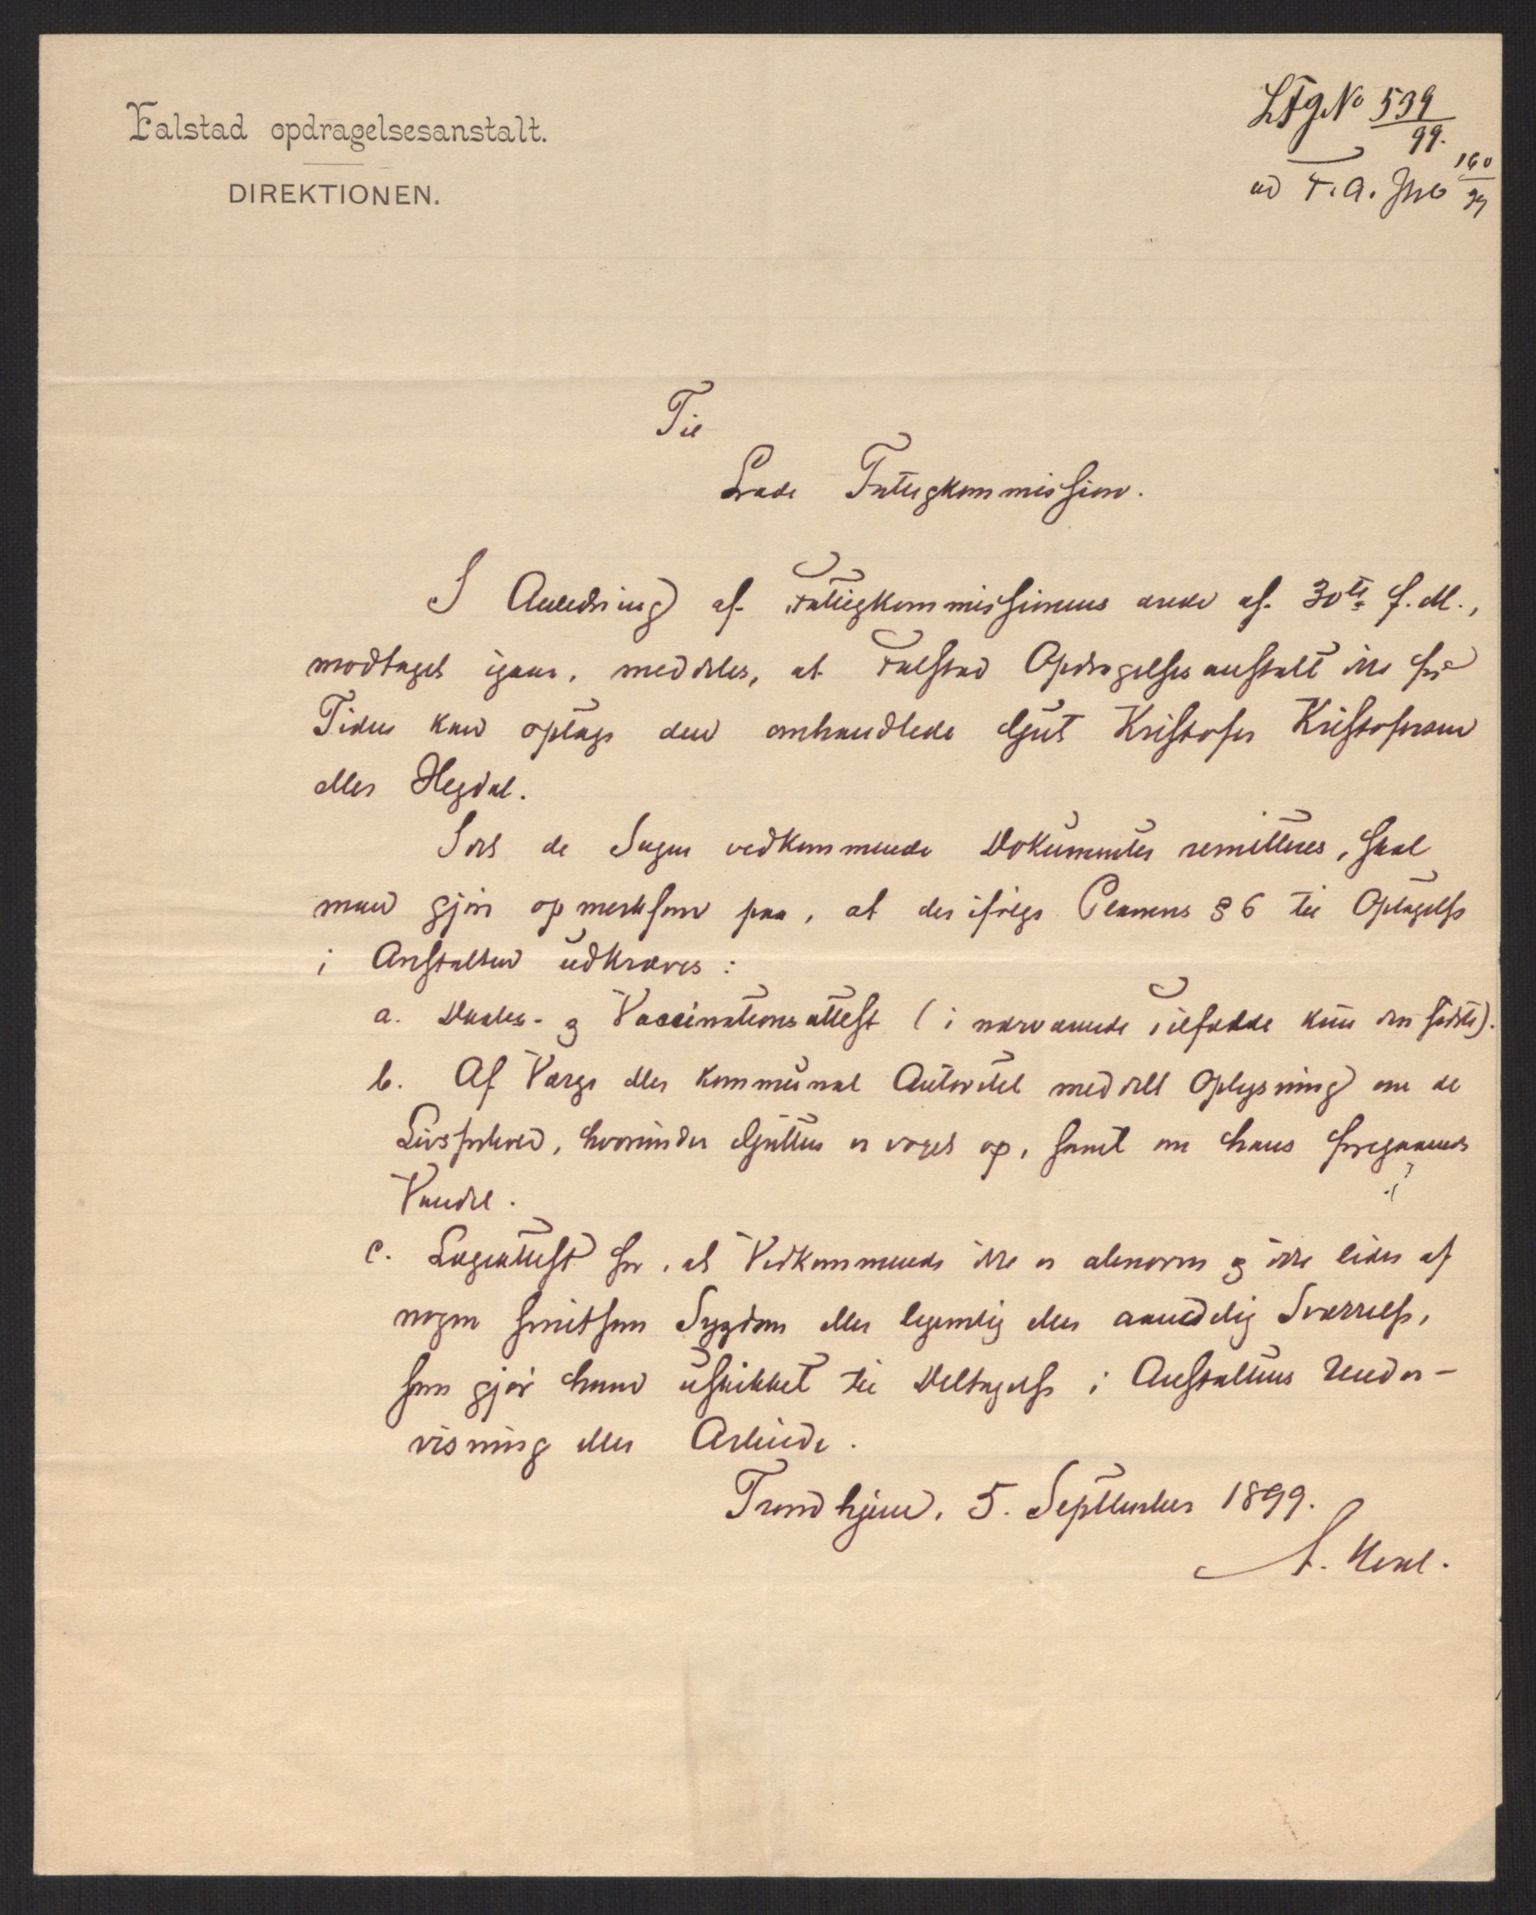 Falstad opdragelsesanstalt.
DIREKTIONEN.
LFgNo 539/99.
ad F. A. Jno 160/99
Til
Lade Fattigkommission.
I Anledning af Fattigkommissionens ande af 30te f. M.,
modtaget igaar, meddeles, at Falstad Opdragelsesanstalt ikke for
Tiden kan optage den omhandlede Gut Kristofer Kristofersen
eller Hegdal.
Idet de Sagen vedkommende Dokumenter remitteres, skal
man gjøre opmerksom paa, at der ifølge Planens § 6 til Optagelse
i Anstalten udkræves:
a. Daabs- og Vaccinationsattest (i nærværende Tilfælde kun den første).
b. Af Værge eller kommunal Autoritet meddelt Oplysning om de
Livsforhold, hvorunder Gutten er voxet op, samt om hans foregaaende
Vandel.
c. Lægeattest for, at Vedkommende ikke er abnorm og ikke lider af
nogen smitsom Sygdom eller legemlig eller aandelig Svækkelse,
som gjør ham uskikket til Deltagelse i Anstaltens Under-
visning eller Arbeide.
Trondhjem, 5. September 1899.